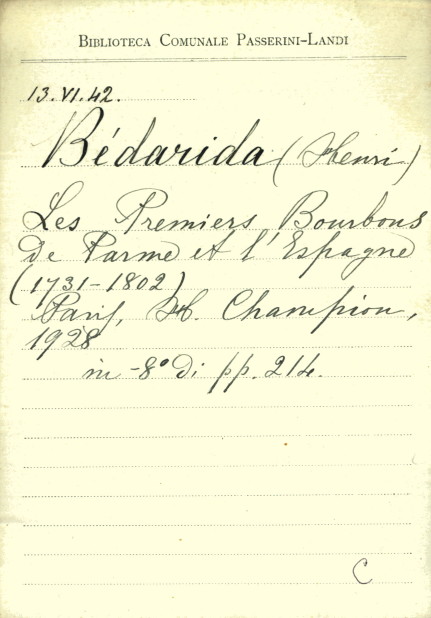 BIBLIOTECA COMUNALE PASSERINI-LANDI
13.VI.42.
Bédarida (Henri)
Les Premiers Bourbons
de Parme et l'Espagne
(1731-1802)
Paris, H. Champion,
1928
in-8° di pp. 214.
C